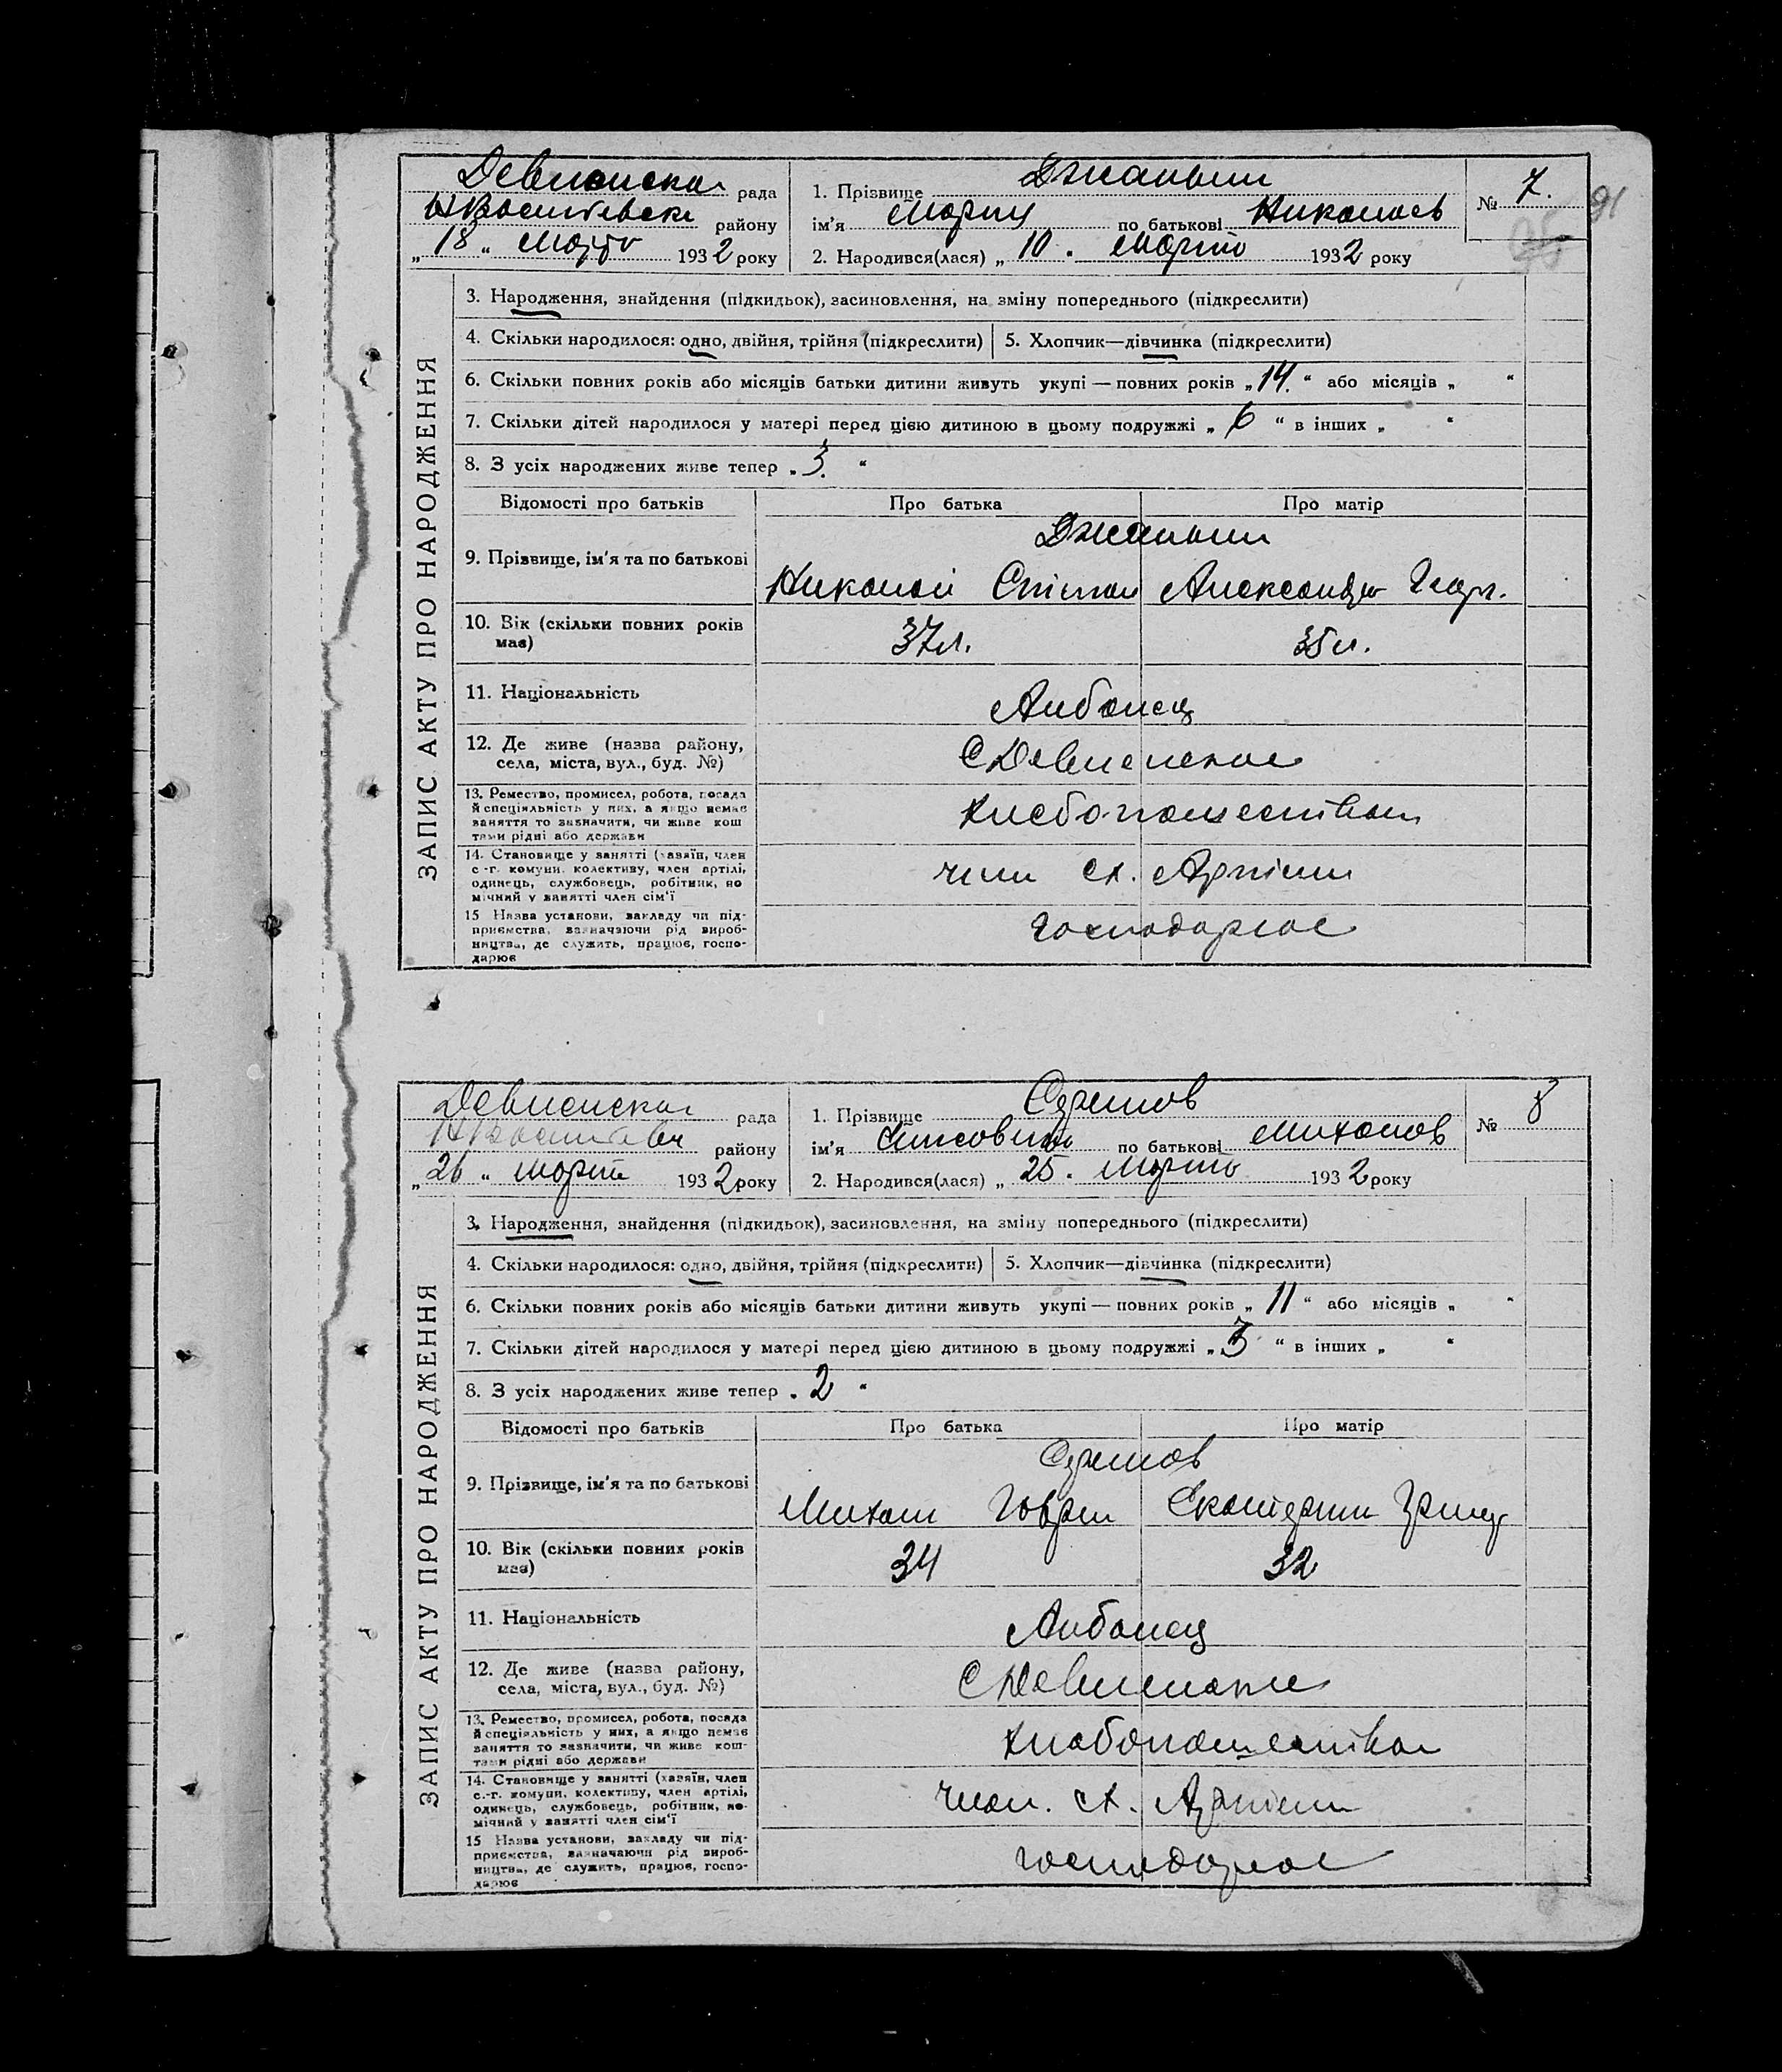 Девненская рада
НВасильевск району
„ 18 “ Марта 1932 року
1. Прізвище Джалыли
ім'я Мария по батькові Николаев
2. Народився(лася) „ 10 . Марта 1932 року
№ 7.
91
ЗАПИС АКТУ ПРО НАРОДЖЕННЯ
3. Народження, знайдення (підкидьок), засиновлення, на зміну попереднього (підкреслити)
4. Скільки народилося: одно, двійня, трійня (підкреслити) 5. Хлопчик—дівчинка (підкреслити)
6. Скільки повних років або місяців батьки дитини живуть укупі — повних років „ 14. “ або місяців „ “
7. Скільки дітей народилося у матері перед цією дитиною в цьому подружжі „ 6 “ в інших „ “
8. З усіх народжених живе тепер „ 3. “
Відомості про батьків Про батька Про матір
9. Прізвище, ім'я та по батькові
Николай Степан Александра Георг.
10. Вік (скільки повних років має) 37л. 35л.
11. Національність Албанец
12. Де живе (назва району, села, міста, вул., буд. №) С Девненское
13. Ремество, промисел, робота, посада
й спеціяльність у них, а якщо немає
заняття то зазначити, чи живе кош
тами рідні або держави
Хлебопашество
14. Становище у занятті (хазяїн, член
с.-г. комуни, колективу, член артілі,
одинець, службовець, робітник, по
мічний у занятті член сім'ї
член сх. Артели
15 Назва установи, закладу чи під-
приємства, зазначаючи рід вироб-
ництва, де служить, працює, госпо-
дарює
господарює
Девненская рада
НВасильевск району
„ 26 “ марта 1932 року
1. Прізвище
ім'я по батькові Михайлов
2. Народився(лася) „ 25 . Марта 1932 року
№ 8
ЗАПИС АКТУ ПРО НАРОДЖЕННЯ
3. Народження, знайдення (підкидьок), засиновлення, на зміну попереднього (підкреслити)
4. Скільки народилося: одно, двійня, трійня (підкреслити) 5. Хлопчик—дівчинка (підкреслити)
6. Скільки повних років або місяців батьки дитини живуть укупі — повних років „ 11 “ або місяців „ “
7. Скільки дітей народилося у матері перед цією дитиною в цьому подружжі „ 3 “ в інших „ “
8. З усіх народжених живе тепер „ 2 “
Відомості про батьків Про батька Про матір
9. Прізвище, ім'я та по батькові
Михаил Гаврил Екатерина
10. Вік (скільки повних років має) 34 32
11. Національність Албанец
12. Де живе (назва району, села, міста, вул., буд. №) С Девненское
13. Ремество, промисел, робота, посада
й спеціяльність у них, а якщо немає
заняття то зазначити, чи живе кош-
тами рідні або держави
Хлебопашество
14. Становище у занятті (хазяїн, член
с.-г. комуни, колективу, член артілі,
одинець, службовець, робітник, по-
мічний у занятті член сім'ї
член. сх. Артели
15 Назва установи, закладу чи під-
приємства, зазначаючи рід вироб-
ництва, де служить, працює, госпо-
дарює
господарює